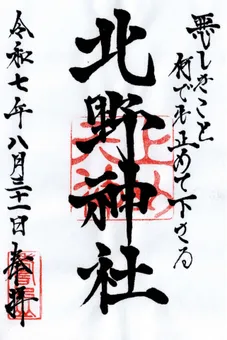 悪しきこと
何でも止めて下さる
北野神社
令和七年八月三十一日 奉拝